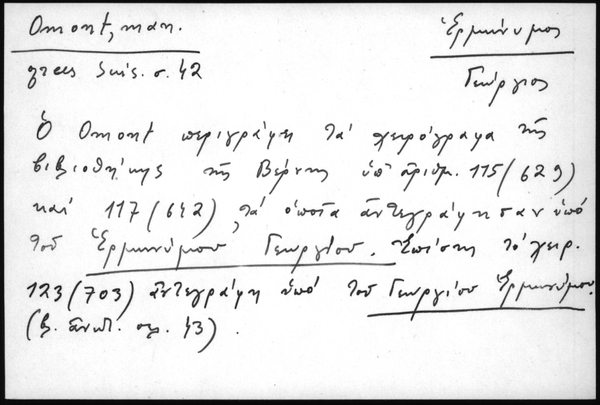 Omont, man.
grecs Suis. σ. 42
Ἑρμώνυμος
Γεώργιος
Ὁ Omont περιγράφει τά χειρόγραφα τῆς
βιβλιοθήκης τῆς Βέρνης ὑπ' ἀριθμ. 115 (629)
καί 117 (642), τά ὁποῖα ἀντεγράφησαν ὑπό
τοῦ Ἑρμωνύμου Γεωργίου. Ἐπίσης τό χειρ.
123 (703) ἀντεγράφη ὑπό τοῦ Γεωργίου Ἑρμωνύμου.
(β. ἀνωτ. σελ. 43).